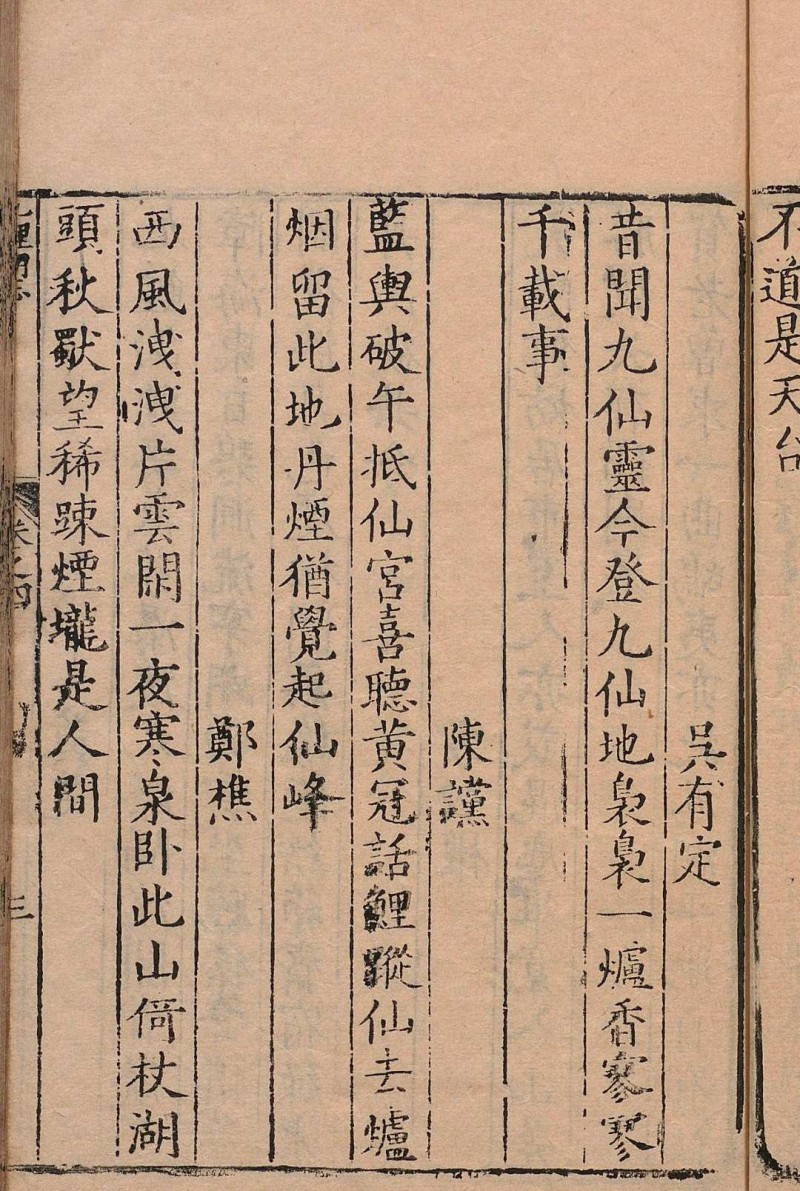 不道是天台
吳有定
昔聞九仙靈今登九仙地裊裊一爐香寥寥
千載事
陳讜
藍輿破午抵仙宮喜聽黃冠話鯉蹤仙去爐
烟留此地丹煙猶覺起仙峰
鄭樵
西風洩洩片雲閑一夜寒泉卧此山倚杖湖
頭秋獸望稀踈煙壠是人間
卷之四
三